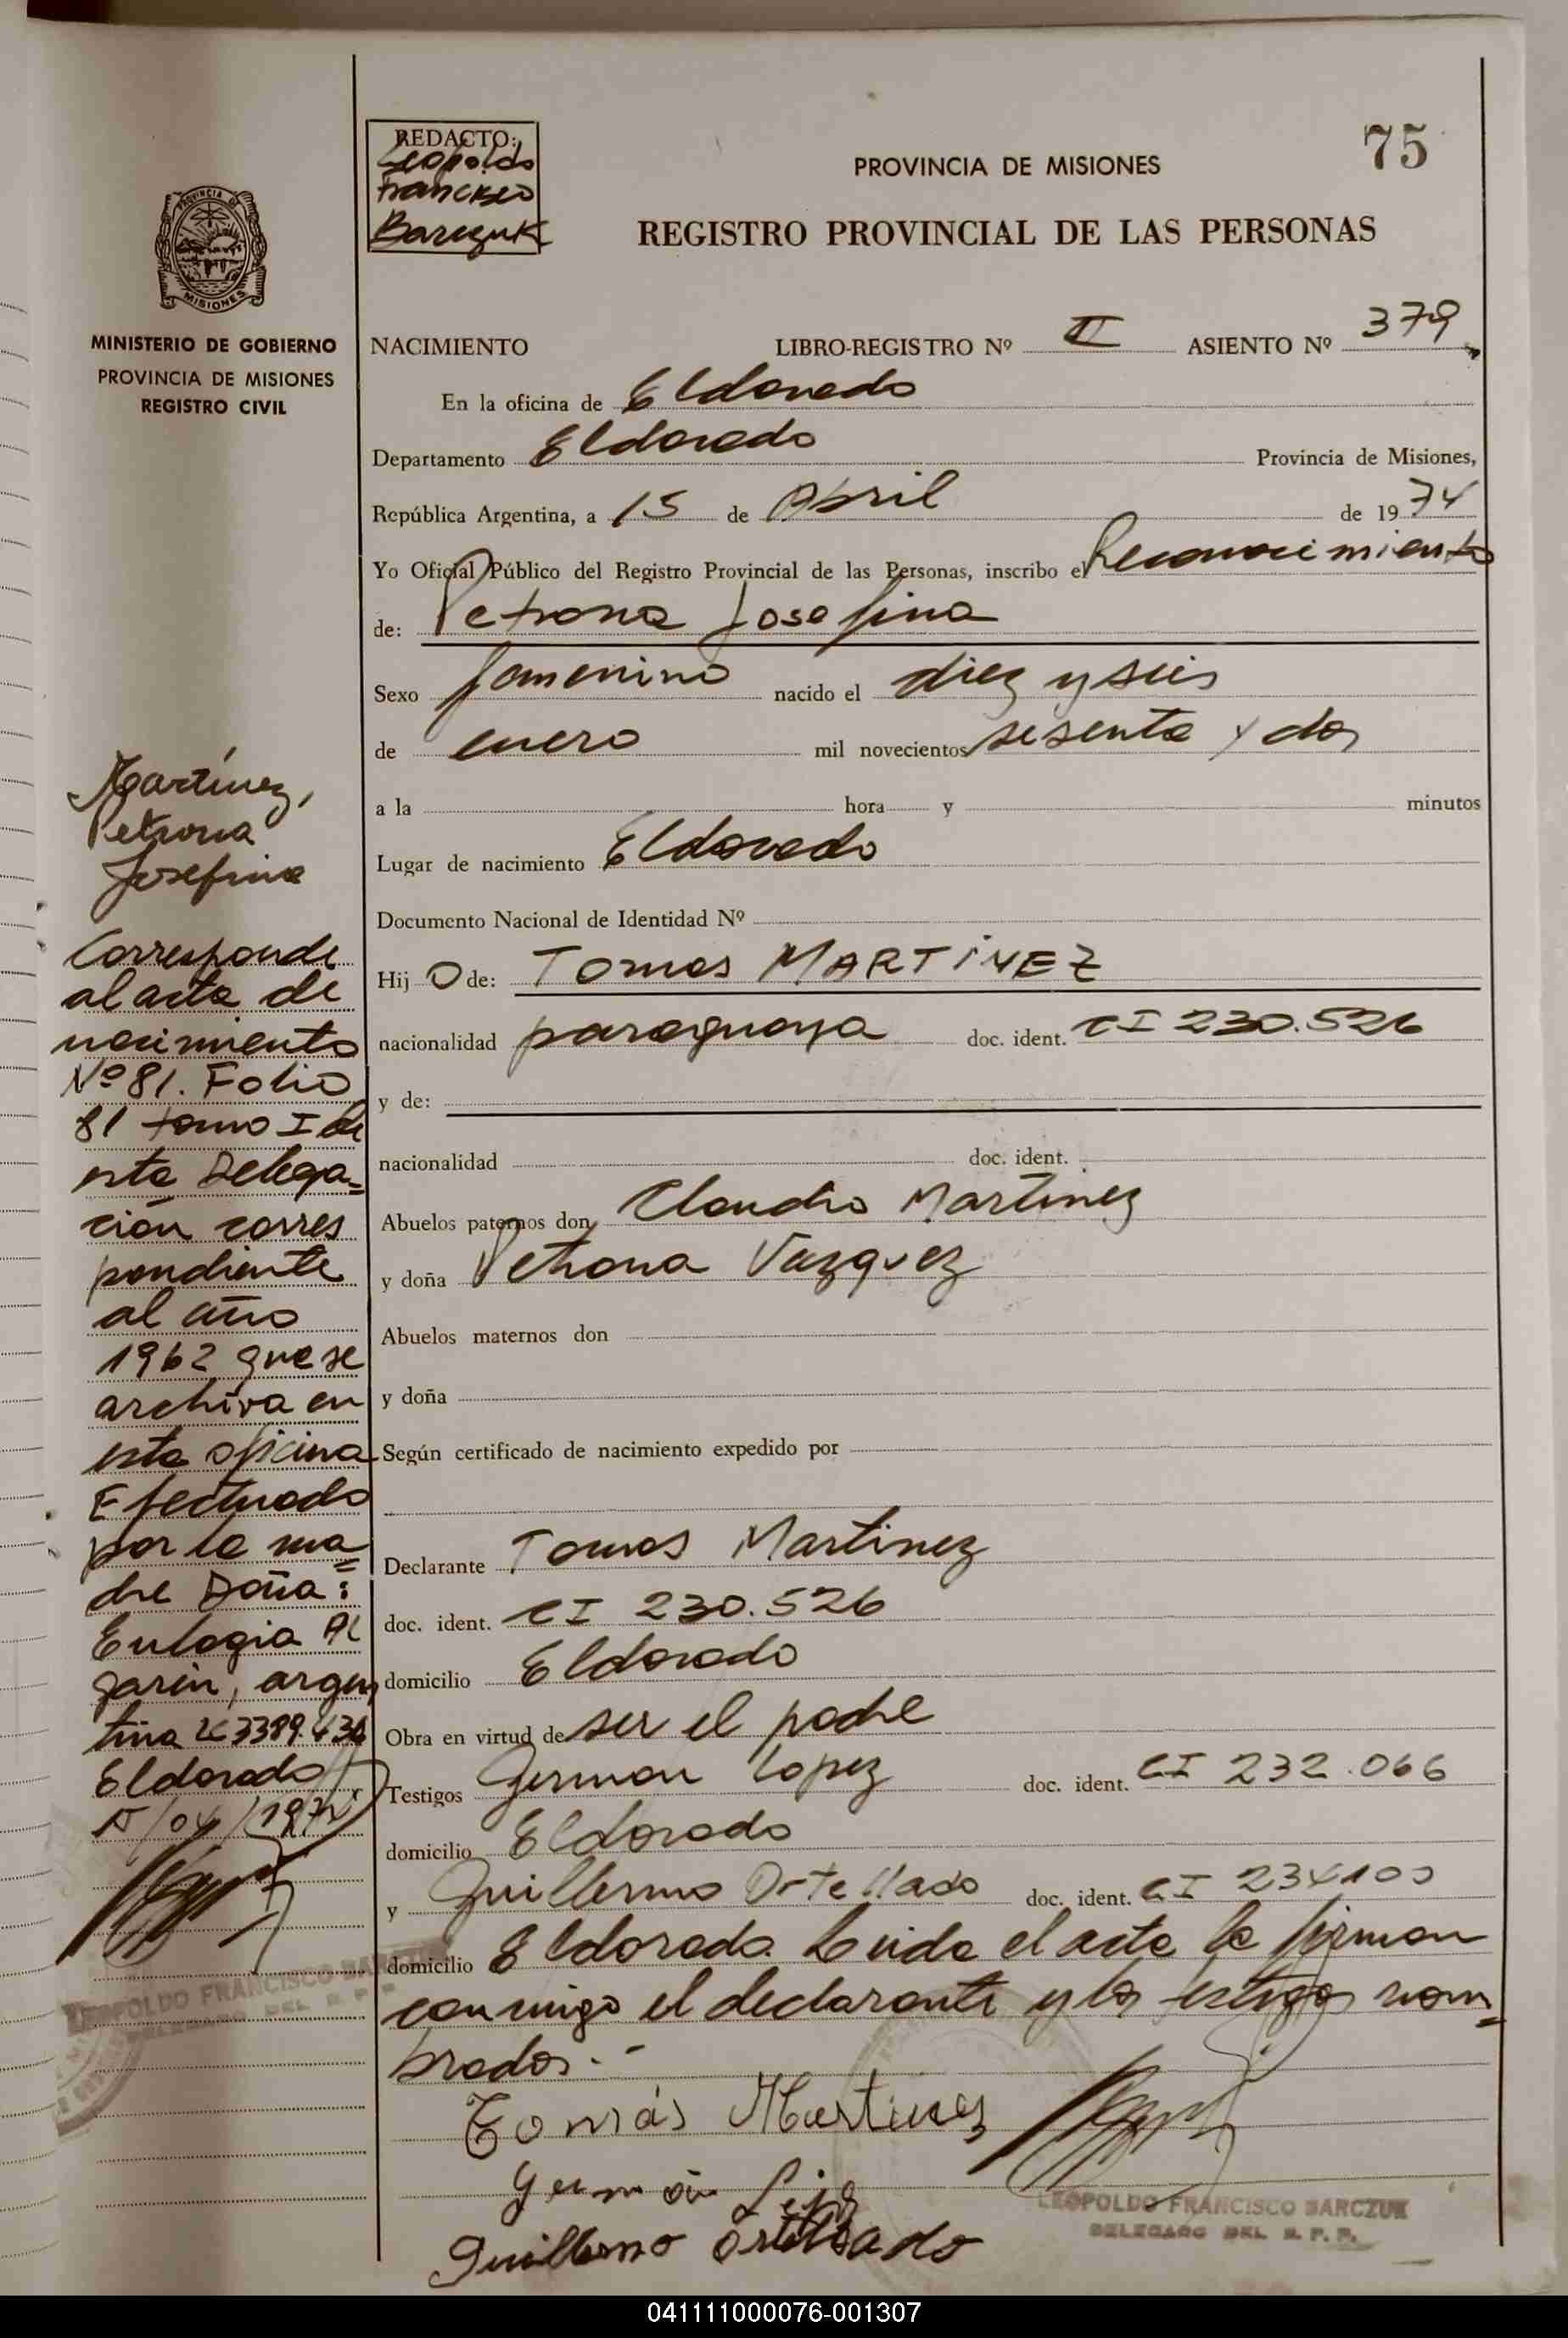 75
REDACTO:
Leopoldo
Francisco
Barczuk
PROVINCIA DE MISIONES
REGISTRO PROVINCIAL DE LAS PERSONAS
PROVINCIA DE
MISIONES
MINISTERIO DE GOBIERNO
PROVINCIA DE MISIONES
REGISTRO CIVIL
NACIMIENTO LIBRO-REGISTRO Nº II ASIENTO Nº 379
En la oficina de Eldorado
Departamento Eldorado Provincia de Misiones,
República Argentina, a 15 de Abril de 1974
Yo Oficial Público del Registro Provincial de las Personas, inscribo el Reconocimiento
de: Petrona Josefina
Sexo femenino nacido el diez y seis
de enero mil novecientos sesenta y dos
a la hora y minutos
Lugar de nacimiento Eldorado
Documento Nacional de Identidad Nº
Hij O de: Tomas MARTINEZ
nacionalidad paraguaya doc. ident. CI 230.526
y de:
nacionalidad doc. ident.
Abuelos paternos don Claudio Martinez
y doña Petrona Vazquez
Abuelos maternos don
y doña
Según certificado de nacimiento expedido por
Declarante Tomas Martinez
doc. ident. CI 230.526
domicilio Eldorado
Obra en virtud de ser el padre
Testigos German Lopez doc. ident. CI 232.066
domicilio Eldorado
y Guillermo Ortellado doc. ident. CI 234100
domicilio Eldorado. Leida el acta la firman
conmigo el declarante y los testigos nom=
brados.-
Tomás Martinez
Guillermo Ortellado
LEOPOLDO FRANCISCO BARCZUK
DELEGADO DEL R. P. P.
Martínez,
Petrona
Josefina
Corresponde
al acta de
nacimiento
Nº 81. Folio
81 tomo I de
esta Delega=
ción corres
pondiente
al año
1962 que se
archiva en
esta oficina
Efectuado
por la ma=
dre Doña:
Eulogia Al
garin, argen
tina
Eldorado
15/04/1974
LEOPOLDO FRANCISCO BARCZUK
DELEGADO DEL R. P. P.
041111000076-001307